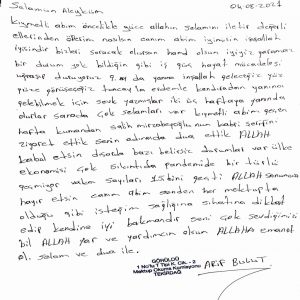 Selamun Aleyküm 04-08-2021
Kıymetli abim öncelikle yüce allahın selamını iletir değerli
ellerinden öperim nasılsın canım abim iyimisin inşallah
iyisindir bizleri soracak olursan hamd olsun iyiyiz yaramaz
bir durum yok bildiğin gibi iş güç hayat mücadelesi
uğraşıp duruyoruz 9. ay da yanına inşallah geleceğiz yüz
yüze görüşeceğiz tuncayla erdemle kenduradan yanına
çekilmek için sevk yazmışlar iki üç haftaya yanında
olurlar sırada çok selamları var kıymetli abim geçen
hafta kumandan salih mirzabeyoğlu nun kabri şerifini
ziyaret ettik senin adınada dua ettik ALLAH
kabul etsin dışarda bazı belirsiz durumlar var ülke
ekonomisi çok sıkıntıda pandemide bir türlü
geçmiyor vakan sayıları 25bini geçti ALLAH sonumuzu
hayır etsin canım abim senden her mektupta
olduğu gibi isteğim sağlığına sıhatına dikkat
edip kendine iyi bakmandır seni çok sevdiğimizi
bil ALLAH yar ve yardımcın olsun ALLAHA emanet
ol. selam ve dua ile.
GÖRÜLDÜ
1 No'lu T Tipi K. CİK. - 2
Mektup Okuma Komisyonu
TEKİRDAĞ
ARİF BULUT